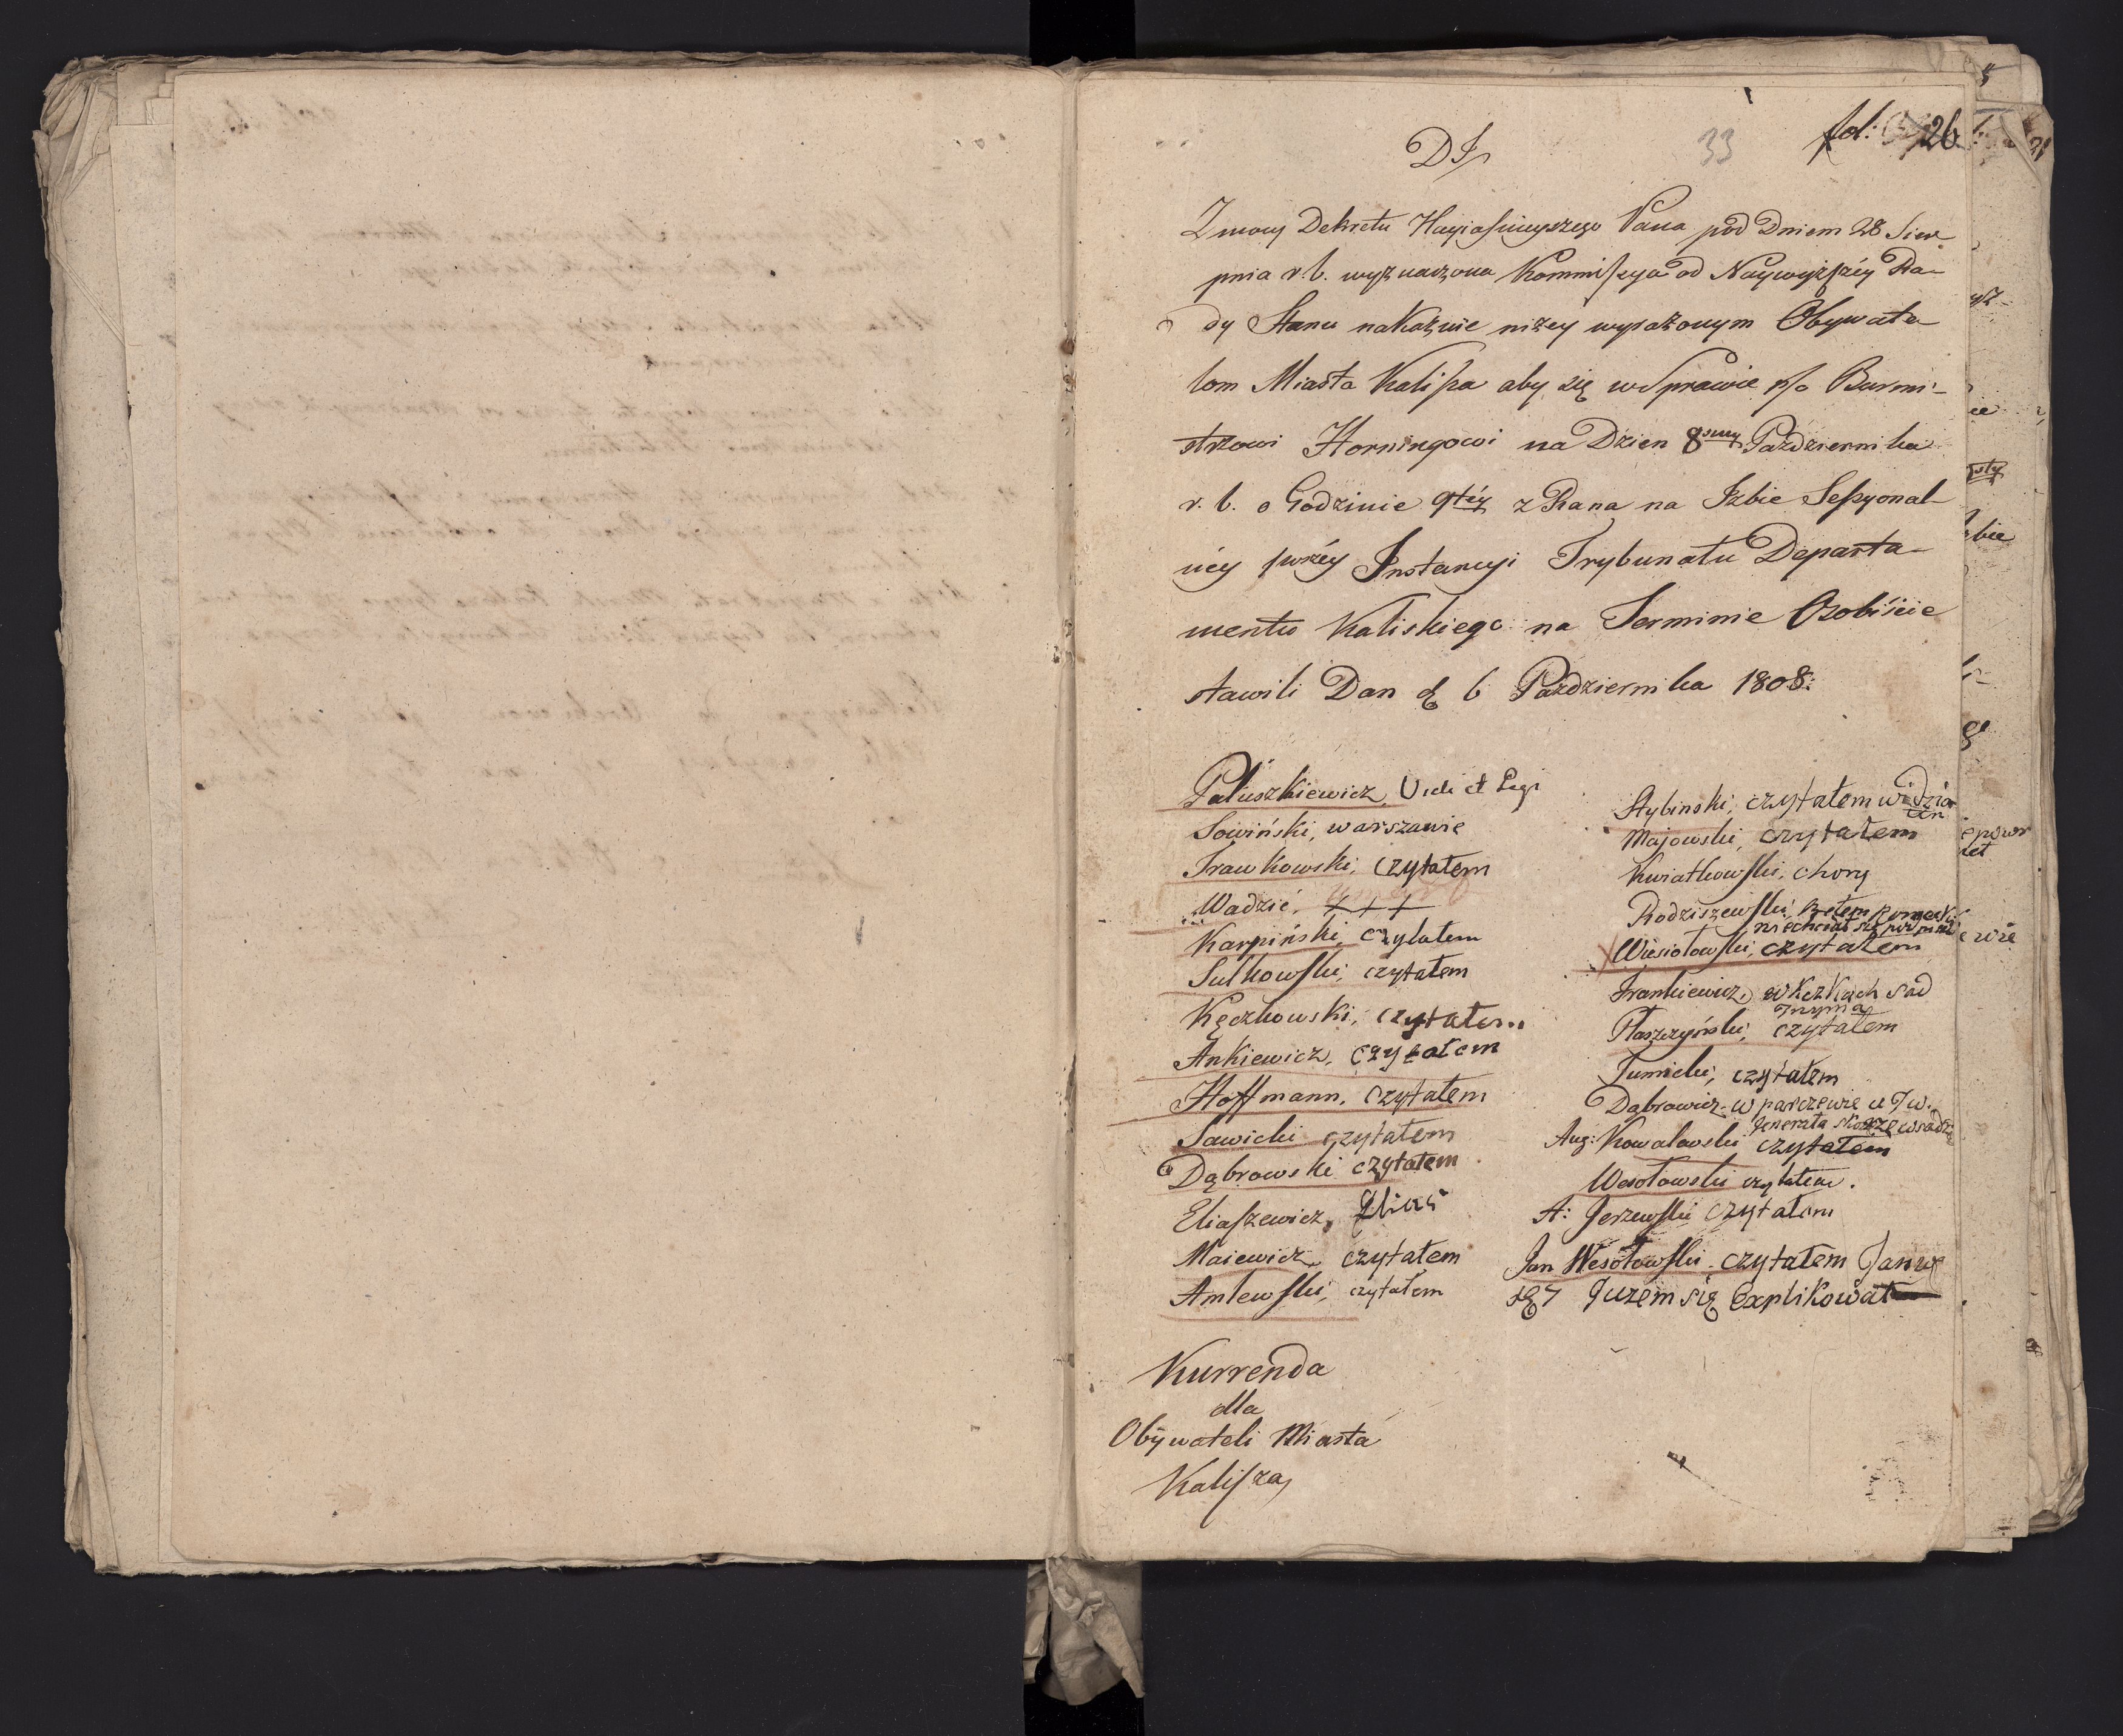 fol: 26
33
DI
Z mocy Dekretu Nayiaśnieyszego Pana pod Dniem 28 Sier
pnia r. b. wyznaczona Kommissya od Naywyższéy Ra-
dy Stanu nakaźnie niżey wyrażonym Obywate-
lom Miasta Kalisza aby się w Sprawie p/o Burmi-
strzowi Horningowi na Dzien 8smy Października
r. b. o Godzinie 9téy z Rana na Izbie Sessyonal-
néy 1wszéy Instancyi Trybunału Departa-
mentu Kaliskiego na Terminie Osobiście
stawili Dan d 6 Października 1808.
Patuszkiewicz, Vidi et Legi
Sowiński, warszawie
Trawkowski, czytałem
Wadzić, +++
Karpiński, czytałem
Sulkowski, czytałem
Kęczkowski, czytałem
Ankiewicz, czytałem
Hoffmann, czytałem
Sawicki czytałem
Dąbrowski czytałem
Eliaszewicz,
Maiewicz, czytałem
Amlewski, czytałem
Stybinski, czytałem widzia
łen
Majowski, czytałem
Kwiatkowski, chory
Rodziszewski,
niechciał się
Wiesiołowski, czytałem
Frankiewicz, sad
Płaszczyński, czytałem
Tumicki, czytałem
Dąbrowicz w parczewie u Jw.
Jenerała
Aug: Kowalewski czytałem
Wesołowski czytałem.
A: Gerzewski czytałem
Jan Wesołowski czytałem Janw
d 7 Juzem się Explikował
Kurrenda
dla
Obywateli Miasta
Kalisza